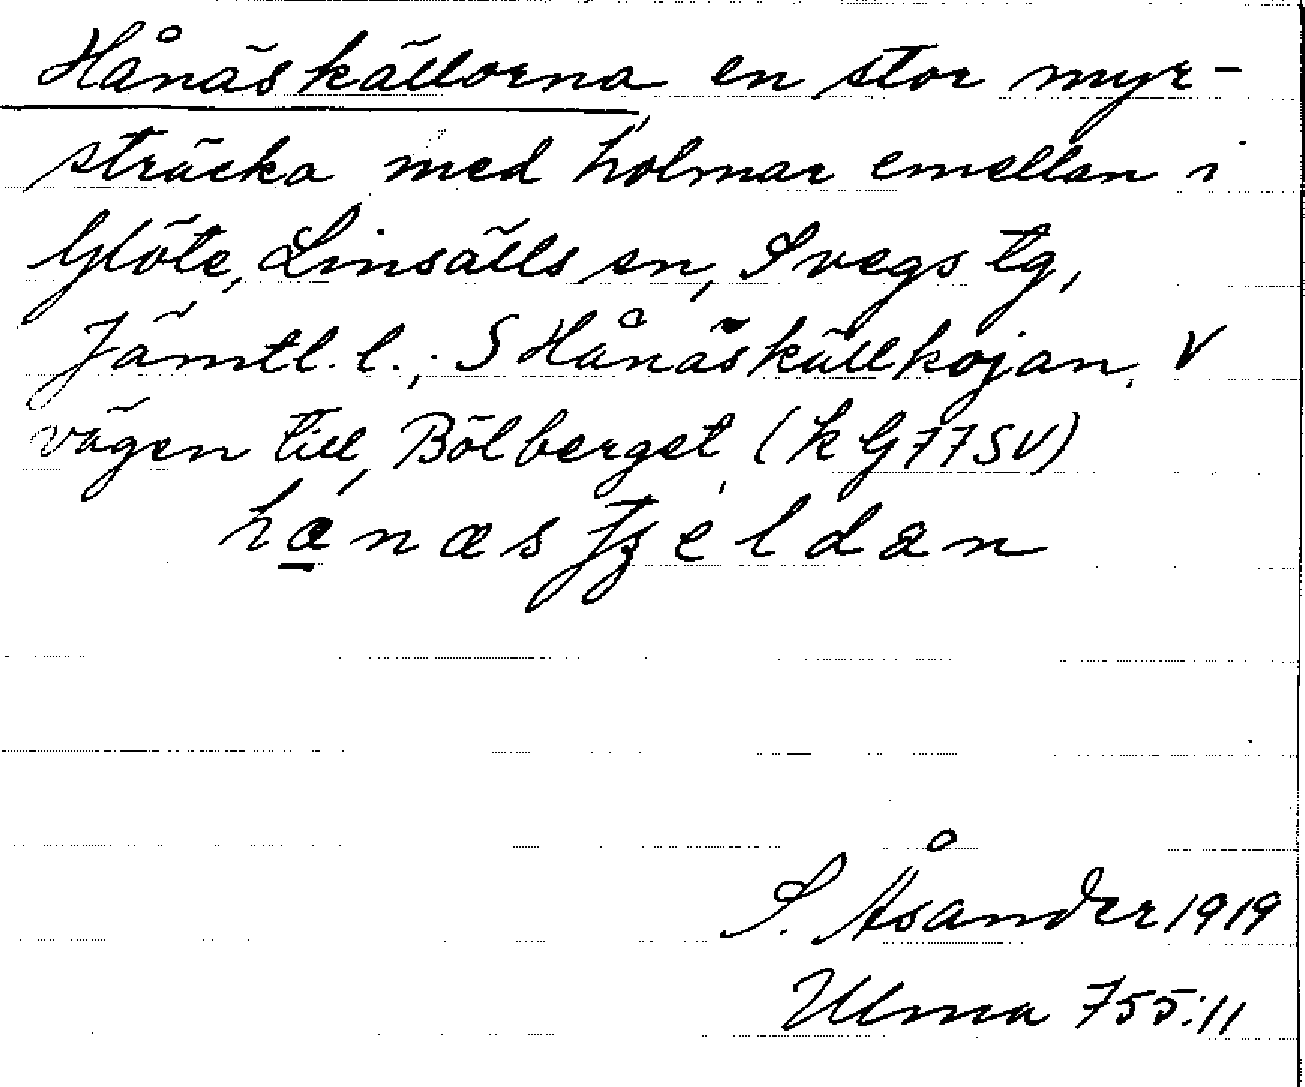 Hånäskällorna en stor myr-
sträcka med holmar emellan i
Glöte, Linsälls sn, Svegs tg,
Jämtl. l., S Hånäskällkojan, V
vägen till Bölberget (k G77SV)
S. Åsander 1919
Ulma 755:11